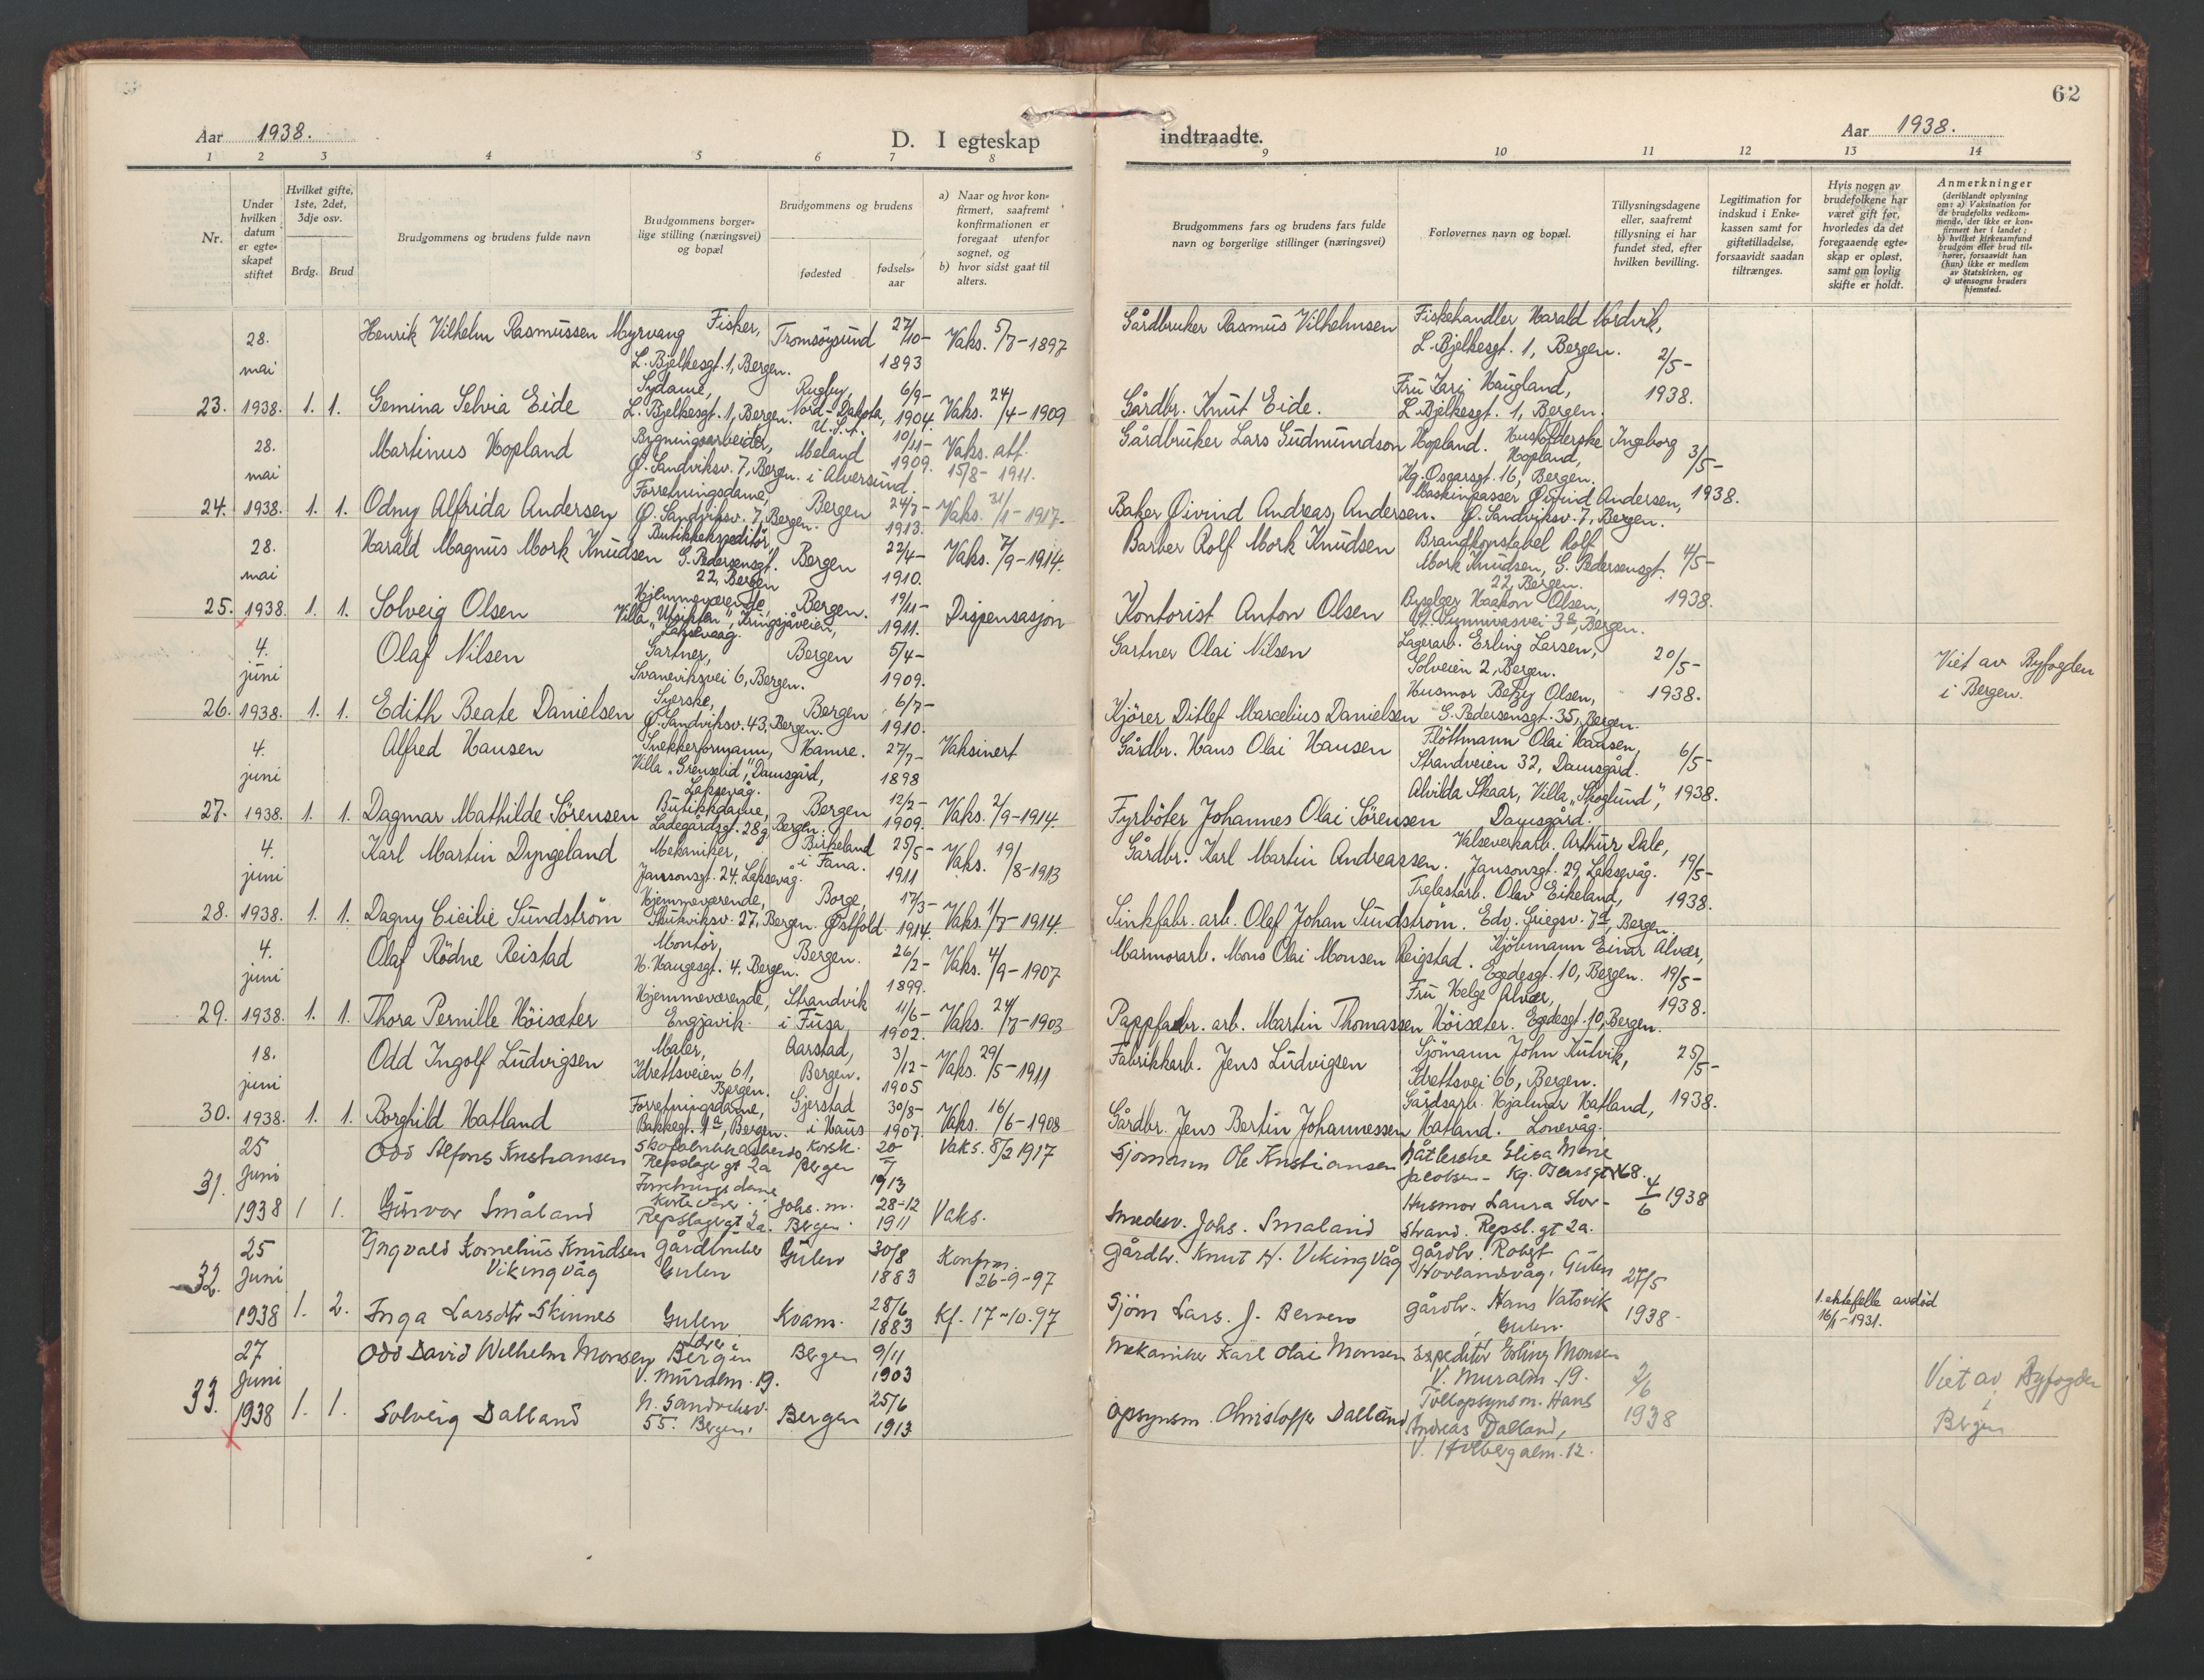 62
Aar 1938.
D. I egteskap
indtraadte.
Aar 1938.
1 2 3 4 5 6 7 8 9 10 11 12 13 14
Nr.
Under
hvilken
datum
er egte-
skapet
stiftet
Hvilket gifte,
1ste, 2det,
3dje osv.
Brdg. Brud
Brudgommens og brudens fulde navn
Brudgommens borger-
lige stilling (næringsvei)
og bopæl
Brudgommens og brudens
fødested
fødsels-
aar
a) Naar og hvor kon-
firmert, saafremt
konfirmationen er
foregaat utenfor
sognet, og
b) hvor sidst gaat til
alters.
Brudgommens fars og brudens fars fulde
navn og borgerlige stillinger (næringsvei)
Forlovernes navn og bopæl.
Tillysningsdagene
eller, saafremt
tillysning ei har
fundet sted, efter
hvilken bevilling.
Legitimation for
indskud i Enke-
kassen samt for
giftetilladelse,
forsaavidt saadan
tiltrænges.
Hvis nogen av
brudefolkene har
været gift før,
hvorledes da det
foregaaende egte-
skap er opløst,
samt om lovlig
skifte er holdt.
Anmerkninger
(deriblandt oplysning
om: a) Vaksination for
de brudefolks vedkom-
mende, der ikke er kon-
firmert her i landet;
b) hvilket kirkesamfund
brudgom eller brud til-
hører, forsaavidt han
(hun) ikke er medlem
av Statskirken, og
c) utensogns bruders
hjemsted.
23. 28. mai 1938. 1. 1.
Henrik Vilhelm Rasmussen Myrvang
Fisker,
L. Bjelkesgt. 1, Bergen.
Tromsöysund
27/10-
1893
Vaks. 5/7-1897
Gårdbruker Rasmus Vilhelmsen
Fiskehandler Harald Nordvik,
L. Bjelkesgt. 1, Bergen.
2/5-
1938.
Gemina Selvia Eide
Sydame,
L. Bjelkesgt. 1, Bergen.
Rugby,
Nord-Dakota,
U.S.A.
6/9-
1904.
Vaks. 24/4-1909
Gårdbr. Knut Eide.
Fru Haugland,
L. Bjelkesgt. 1, Bergen.
24. 28. mai 1938. 1. 1.
Martinus Hopland
Bygningsarbeider,
Ø. Sandviksv. 7, Bergen.
Meland
i Alversund.
10/11-
1909.
Vaks. att.
15/8-1911.
Gårdbruker Lars Gudmundson Hopland.
Husholderske Ingeborg
Hopland,
Kg. Oscarsgt. 16, Bergen.
3/5-
1938.
Odny Alfrida Andersen
Forretningsdame,
Ø. Sandviksv. 7, Bergen.
Bergen
24/7-
1913.
Vaks. 31/1-1917.
Baker Øivind Andreas Andersen.
Maskinpasser Øivind Andersen,
Ø. Sandviksv. 7, Bergen.
25. 28. mai 1938. 1. 1.
Harald Magnus Mork Knudsen
Butikkekspeditör,
G. Pedersensgt.
22, Bergen
Bergen
22/4-
1910.
Vaks. 7/9-1914.
Barber Rolf Mork Knudsen
Brandkonstabel Rolf
Mork Knudsen, G. Pedersensgt.
22, Bergen.
4/5-
1938.
Solveig Olsen
Hjemmeværende,
Villa "Utsikten", Kringsjåveien,
Laksevaag.
Bergen.
19/11-
1911.
Dispensasjon
Kontorist Anton Olsen
Byselger Haakon Olsen,
St. Sunnivasvei 3a, Bergen.
26. 4. juni 1938. 1. 1.
Olaf Nilsen
Gartner,
Svaneviksvei 6, Bergen.
Bergen
5/4-
1909.
Gartner Olai Nilsen
Lagerarb. Erling Larsen,
Solveien 2, Bergen.
20/5-
1938.
Viet av Byfogden
i Bergen.
Edith Beate Danielsen
Syerske,
Ø. Sandviksv. 43, Bergen.
Bergen
6/7-
1910.
Kjörer Ditlef Marcelius Danielsen
Husmor Betzy Olsen,
G. Pedersensgt. 35, Bergen.
27. 4. juni 1938. 1. 1.
Alfred Hansen
Snekkerformann,
Villa "Grenselid", Damsgård,
Laksevåg.
Hamre.
27/7-
1898
Vaksinert
Gårdbr. Hans Olai Hansen
Flöttmann Olai Hansen,
Strandveien 32, Damsgård.
6/5-
1938.
Dagmar Mathilde Sørensen
Butikkdame,
Ladegårdsgt. 28g, Bergen.
Bergen
12/2-
1909.
Vaks. 2/9-1914.
Fyrböter Johannes Olai Sörensen
Alvilda Skaar, Villa "Skoglund",
Damsgård.
28. 4. juni 1938. 1. 1.
Karl Martin Dyngeland
Mekaniker,
Janssonsgt. 24, Laksevåg.
Birkeland
i Fana.
25/5-
1911
Vaks. 19/8-1913
Gårdbr. Karl Martin Andreassen.
Valseverkarb. Arthur Dale,
Jansonsgt. 29, Laksevåg.
19/5-
1938.
Dagny Cicilie Sundström
Hjemmeværende,
Skutviksv. 27, Bergen.
Borge,
Østfold.
17/3-
1914.
Vaks. 1/7-1914.
Sinkfabr. arb. Olaf Johan Sundström.
Trelastarb. Olav Eikeland,
Edv. Griegsv. 7d, Bergen.
29. 4. juni 1938. 1. 1.
Olaf Rödne Reistad
Montör,
H. Haugesgt. 4, Bergen.
Bergen.
26/2-
1899.
Vaks. 4/9-1907
Marmorarb. Mons Olai Monsen Reigstad.
Kjöbmann Einar Alvær,
Egedesgt. 10, Bergen.
19/5-
1938.
Thora Pernille Höisæter
Hjemmeværende,
Engjavik.
Strandvik
i Fusa
11/6-
1902.
Vaks. 24/7-1903
Pappfabr. arb. Martin Thomassen Höisæter.
Fru Helge Alvær,
Egedesgt. 10, Bergen.
30. 18. juni 1938. 1. 1.
Odd Ingolf Ludvigsen
Maler,
Idrettsveien 61,
Bergen.
Aarstad,
Bergen.
3/12-
1905
Vaks. 29/5-1911
Fabrikkarb. Jens Ludvigsen
Sjömann John Kulvik,
Idrettsvei 66, Bergen.
25/5-
1938.
Borghild Hatland
Forretningsdame,
Bakkegt. 1a, Bergen.
Gjerstad
i Haus
30/8-
1907.
Vaks. 16/6-1908
Gårdbr. Jens Bertin Johannessen Hatland.
Gårdsarb. Hjalmar Hatland,
Lonevåg.
31. 25 Juni 1938 1 1.
Odd Alfons Kristiansen
Repslager gt 2a
Korsk.
Bergen
20/7
1913
Vaks. 8/2 1917
Sjömann Ole Kristiansen
Nåtlerske Elisa Marie
Jacobsen - Kg. Oscarsgt 68.
4/6 1938
Gunvor Småland
Forretningsdame
Repslagergt 2a.
Johs. m.
Bergen.
28-12
1911
Vaks.
Smedsv. Johs. Småland
Husmor Laura Stor-
strand. Repsl. gt 2a.
32. 25 Juni 1938 1. 2.
Yngvald Kornelius Knudsen
Vikingvåg
Gårdbruker
Gulen
Gulen
30/8
1883
Konfirm.
26-9-97
Gårdbr. Knut H. Vikingvåg
Gårdbr. Robert
Hovlandsvåg, Gulen
27/5
1938-
Inga Larsdtr Skinnes
Gulen
Kvam.
28/6
1883
Kf. 17-10.97
Sjöm Lars. J. Berven
Gårdbr. Hans Vatsvik
Gulen.
1. ektefelle avdöd
16/1-1931.
33. 27 Juni 1938 1. 1.
Odd David Wilhelm Monsen
Bergen
V. Muralm. 19.
Bergen
9/11
1903
Mekaniker Karl Olai Monsen
Expeditör Erling Monsen
V. Muralm. 19.
2/6
1938
Viet av Byfogden
i
Bergen
Solveig Dalland
N. Sandviksv.
55. Bergen.
Bergen
25/6
1913
Opsynsm. Christoffer Dalland
Tollopsynsm. Hans
Andreas Dalland,
V. Holbergalm. 12.